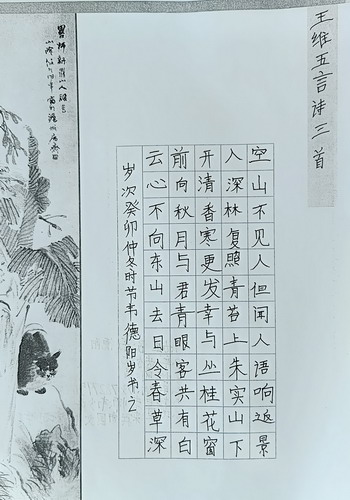 王维五言诗三首
空山不见人但闻人语响返景
入深林复照青苔上朱实山下
开清香寒更发幸与丛桂花窗
前向秋月与君青眼客共有白
云心不向东山去日令春草深
岁次癸卯仲冬时节韦德阳岁书之
師新羅山人